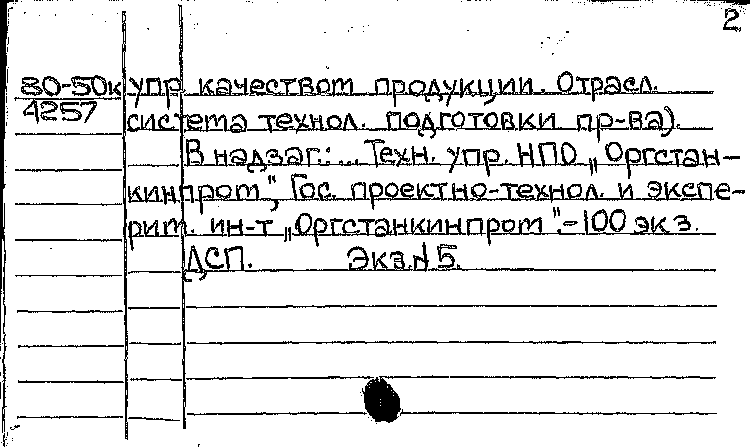 2
80-50к упр качеством продукции. Отрасл.
4257 система технол. подготовки пр-ва).
В надзаг.: ... Техн. упр. НПО „Оргстан-
кинпром", Гос. проектно-технол. и экспе-
рим. ин-т „Оргстанкинпром".-100 экз.
ДСП. Экз.N5.